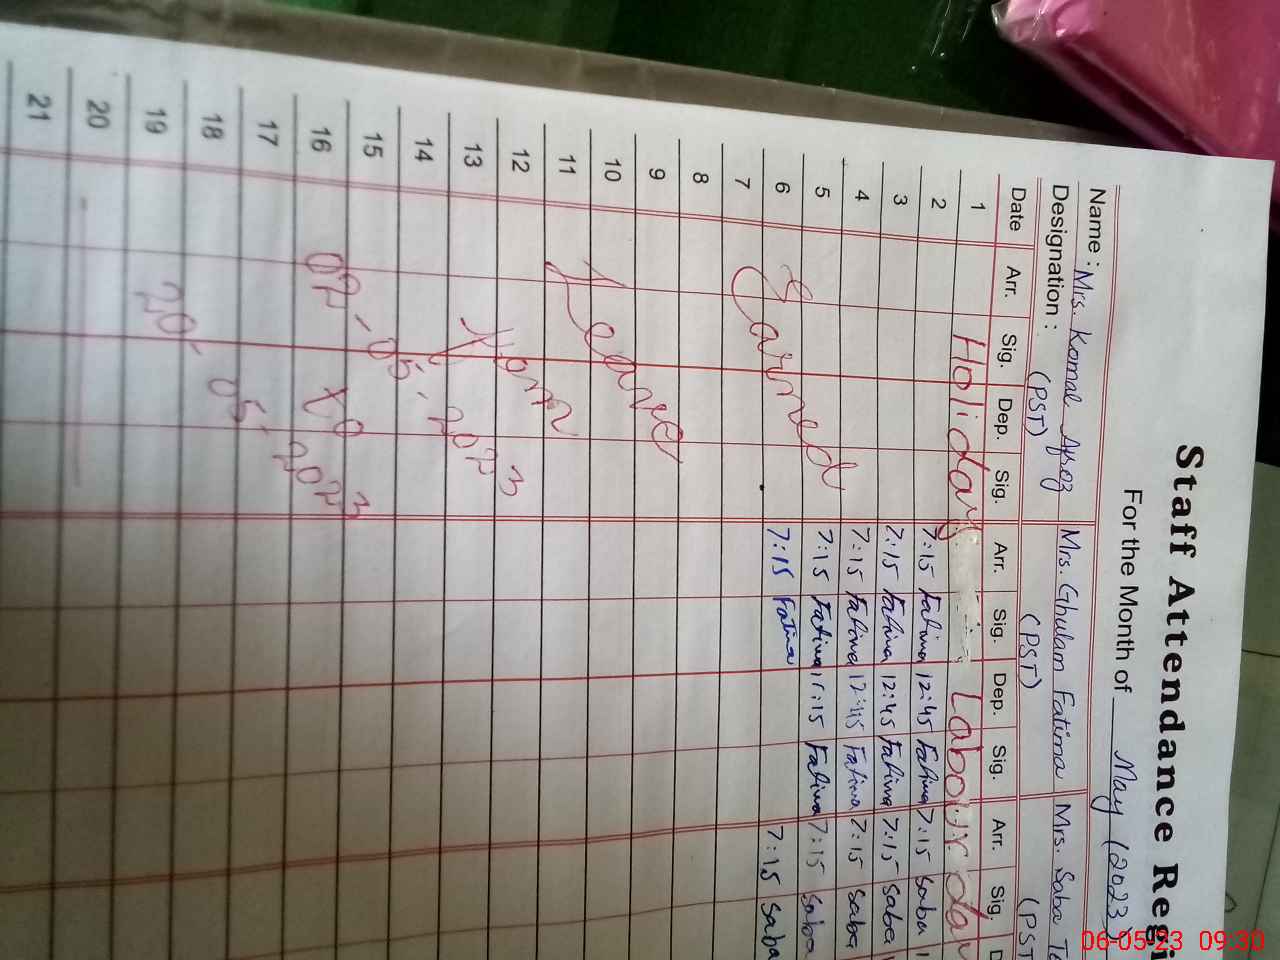 Staff Attendance Regi
For the Month of May (2023)
Name : Mrs. Komal Mrs. Ghulam Fatima Mrs. Saba
Designation : (PST) (PST) (PST
Date Arr. Sig. Dep. Sig. Arr. Sig. Dep. Sig. Arr. Sig. D
1 Holiday Labour day
2 7:15 Fatima 12:45 Fatima 7:15 Saba 1
3 7:15 Fatima 12:45 Fatima 7:15 Saba
4 7:15 Fatima 12:45 Fatima 7:15 Saba
5 7:15 Fatima 11:15 Fatima 7:15 Saba
6 7:15 Fatima 7:15 Saba
7 Earned
8
9
10 Leave
11
12
13 From
14
15 02-05-2023
16 to
17
18
19 20-05-2023
20
21
06-05-23 09:30